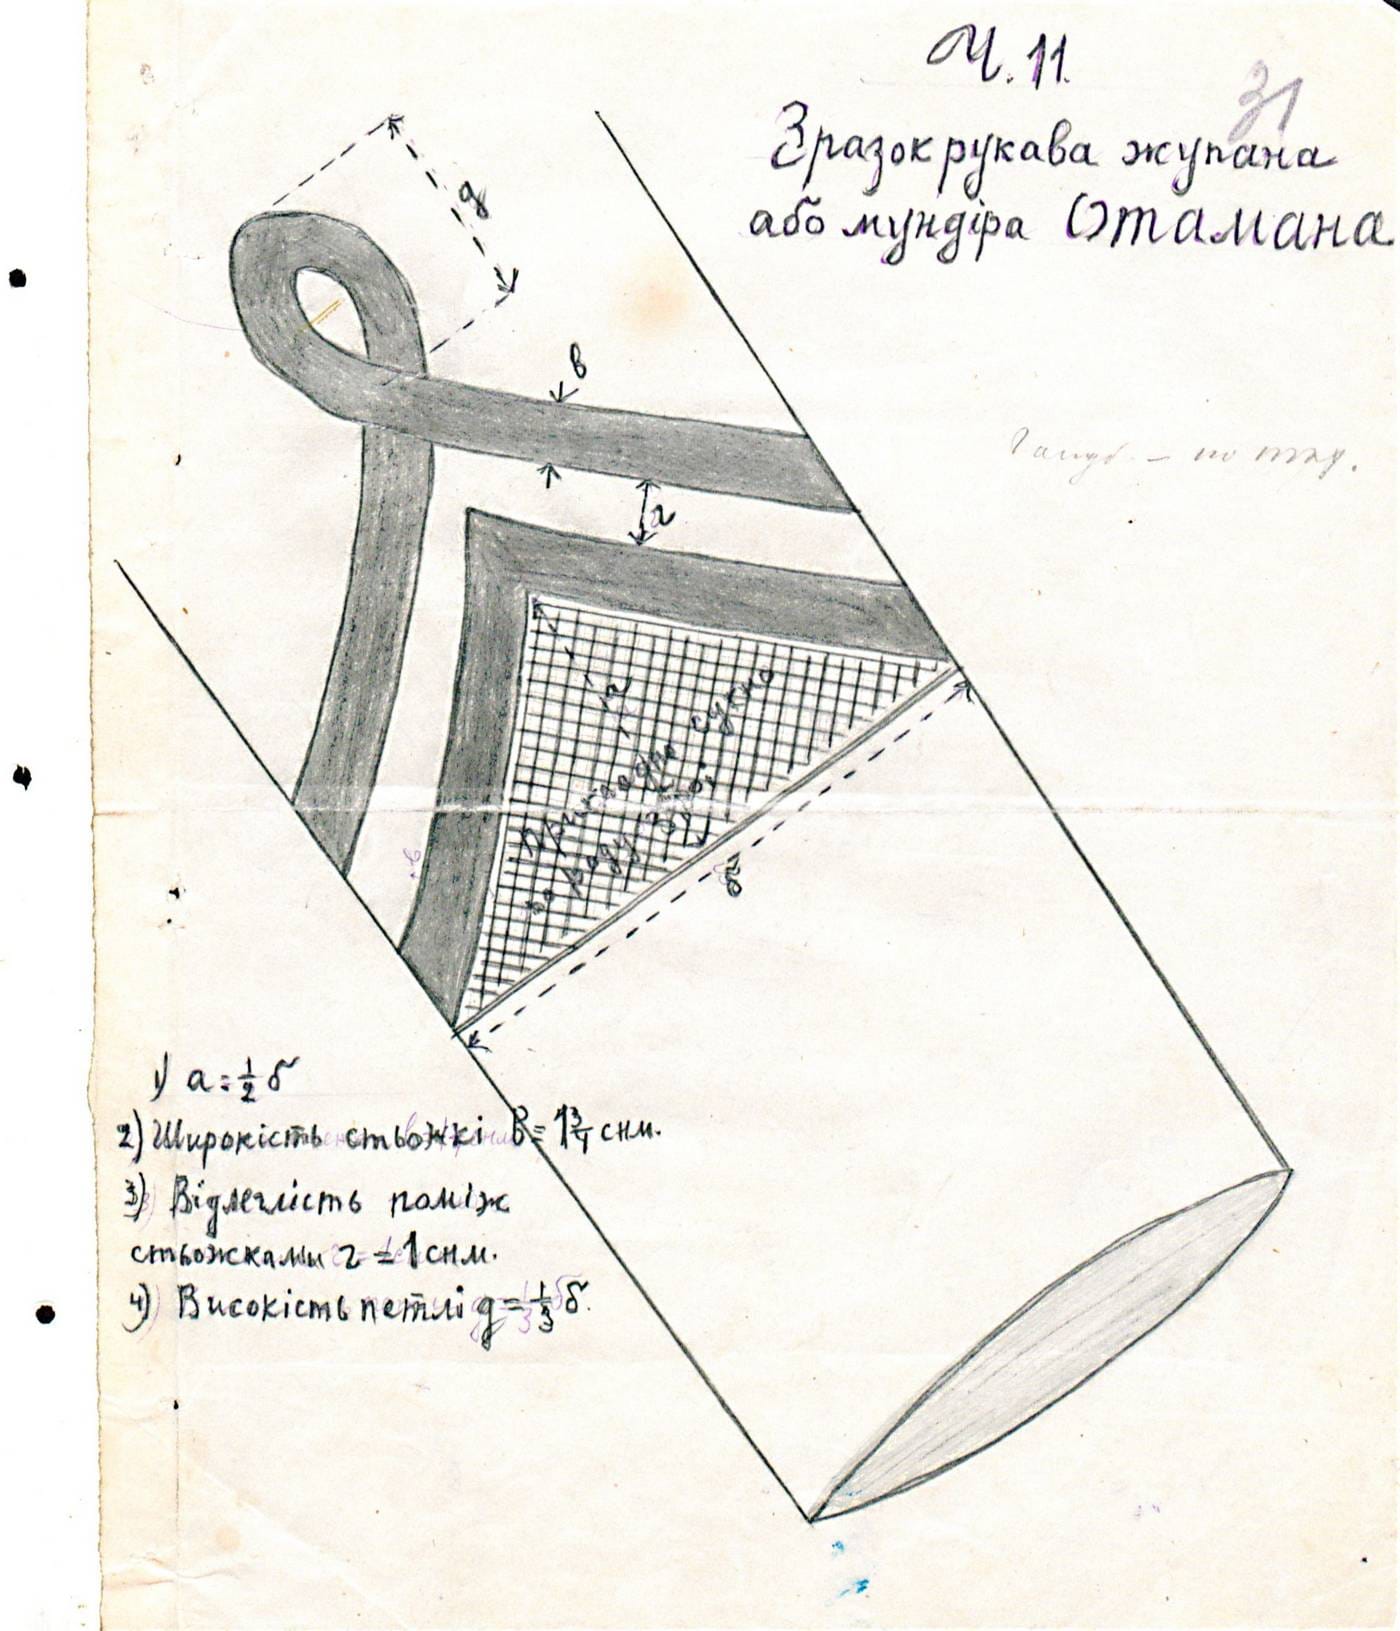 Ч. 11.
31
Зразок рукава жупана
або мундіра Отамана
g
в
г
а
Прикладно сукно
по роду зброї
б
в
1) а = ½ б
2) Широкість стьожкі в = 1¾ снм.
3) Відлеглість поміж
стьожками г = 1 снм.
4) Високість петлі g = ⅓ б.